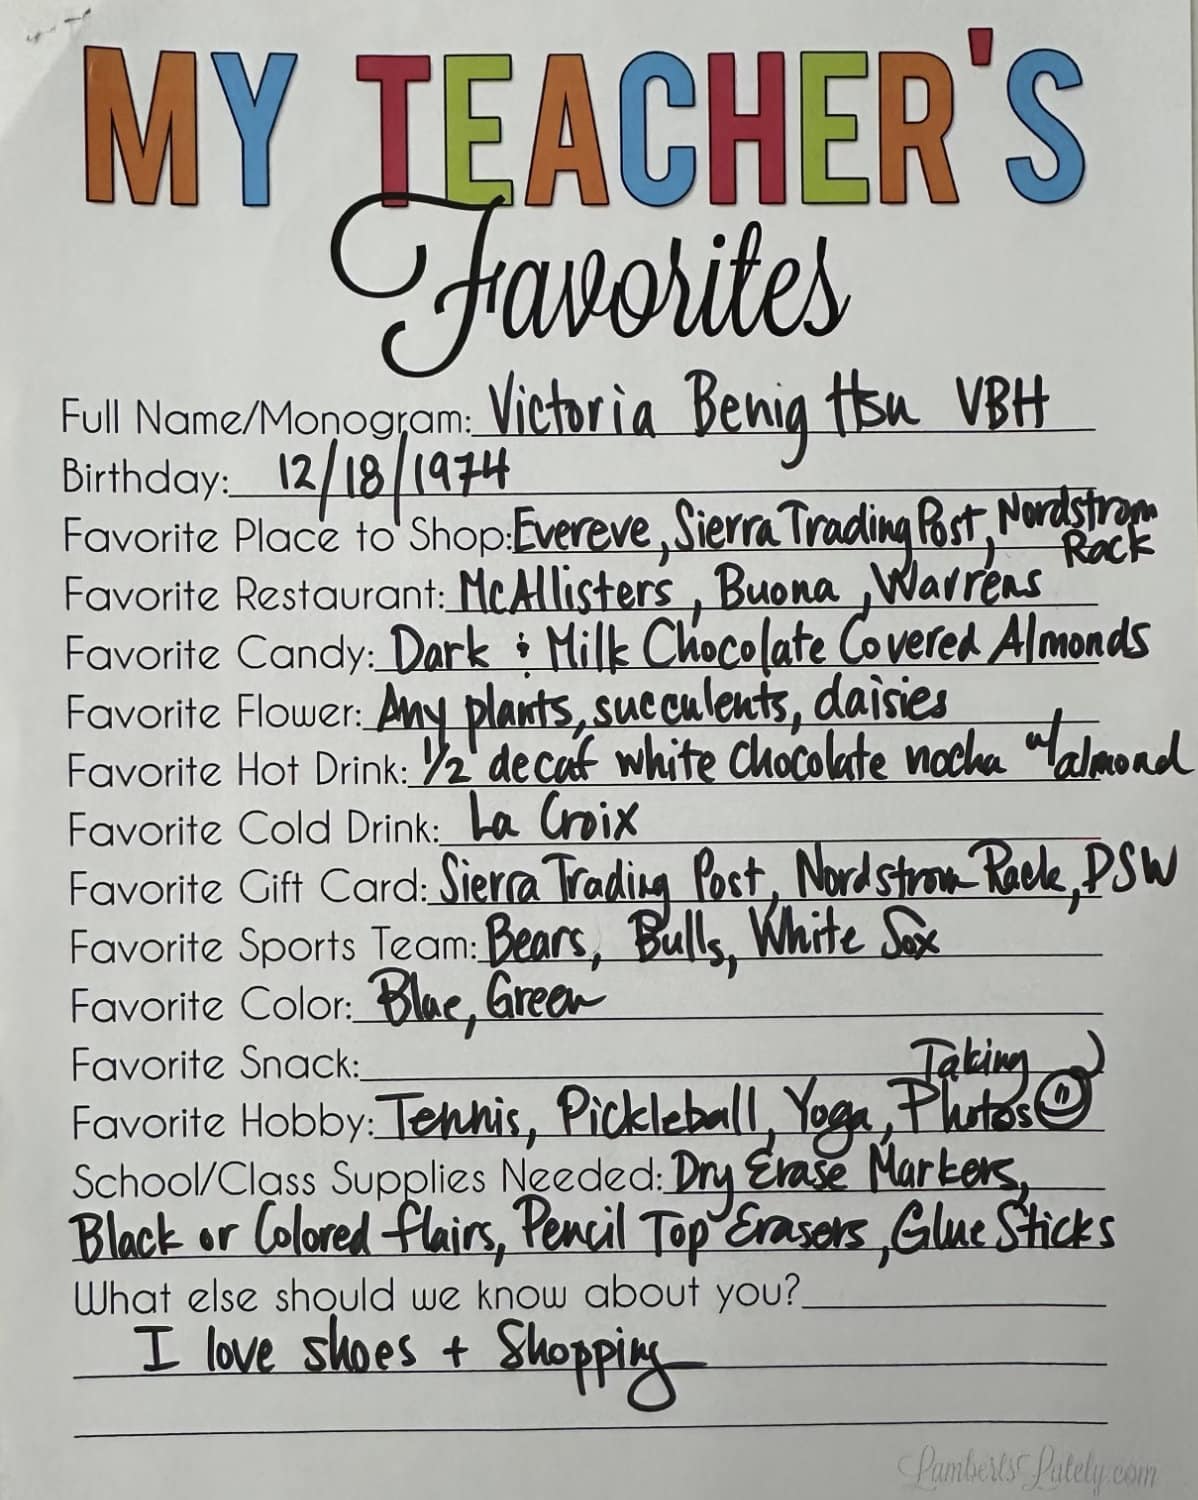 MY TEACHER'S
Favorites
Full Name/Monogram: Victoria Benig Hsu VBH
Birthday: 12/18/1974
Favorite Place to Shop: Evereve, Sierra Trading Post, Nordstrom
Rack
Favorite Restaurant: McAllisters, Buona, Warrens
Favorite Candy: Dark & Milk Chocolate Covered Almonds
Favorite Flower: Any plants, succulents, daisies
Favorite Hot Drink: 1/2 decaf white chocolate mocha w/almond
Favorite Cold Drink: La Croix
Favorite Gift Card: Sierra Trading Post, Nordstrom Rack, DSW
Favorite Sports Team: Bears, Bulls, White Sox
Favorite Color: Blue, Green
Favorite Snack:
Taking
Favorite Hobby: Tennis, Pickleball, Yoga, Photos
School/Class Supplies Needed: Dry Erase Markers,
Black or Colored flairs, Pencil Top Erasers, Glue Sticks
What else should we know about you?
I love shoes + Shopping
LambertsLately.com